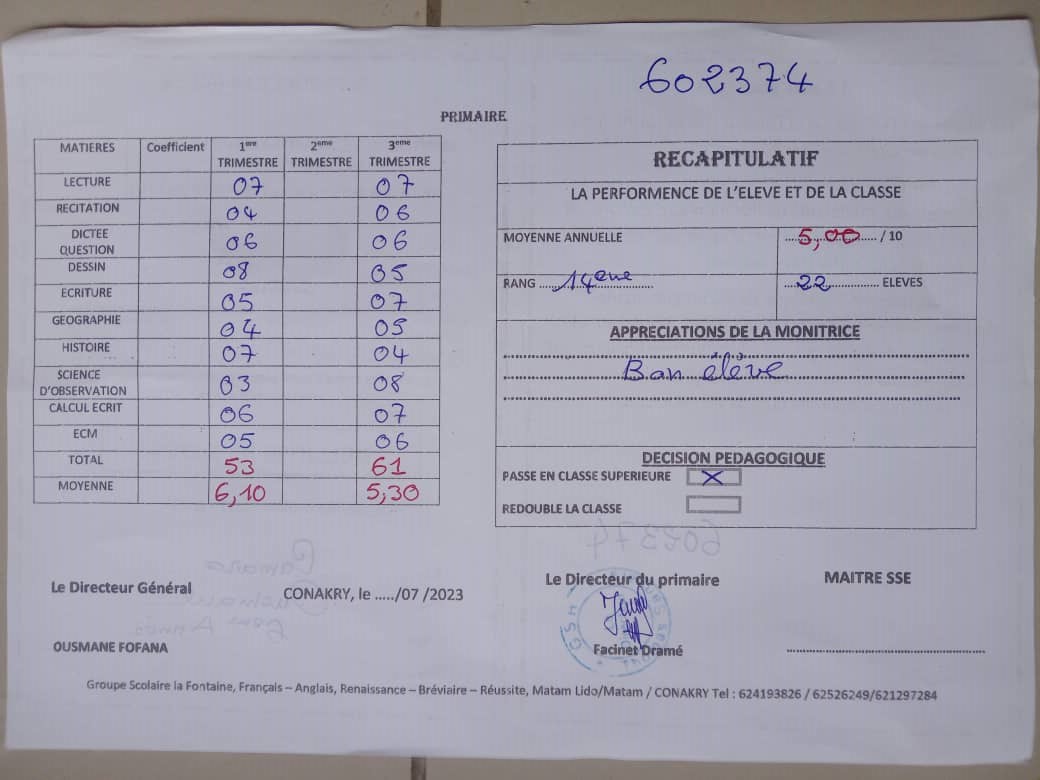 602374
PRIMAIRE
MATIERES Coefficient 1ere TRIMESTRE 2eme TRIMESTRE 3eme TRIMESTRE
LECTURE 07 07
RECITATION 04 06
DICTEE QUESTION 06 06
DESSIN 08 05
ECRITURE 05 07
GEOGRAPHIE 04 05
HISTOIRE 07 04
SCIENCE D'OBSERVATION 03 08
CALCUL ECRIT 06 07
ECM 05 06
TOTAL 53 61
MOYENNE 6,10 5,30
RECAPITULATIF
LA PERFORMENCE DE L'ELEVE ET DE LA CLASSE
MOYENNE ANNUELLE 5,00 / 10
RANG 14eme 22 ELEVES
APPRECIATIONS DE LA MONITRICE
Bon élève
DECISION PEDAGOGIQUE
PASSE EN CLASSE SUPERIEURE X
REDOUBLE LA CLASSE
Le Directeur Général
CONAKRY, le ...../07 /2023
OUSMANE FOFANA
Le Directeur du primaire
Facinet Dramé
MAITRE SSE
Groupe Scolaire la Fontaine, Français – Anglais, Renaissance – Bréviaire – Réussite, Matam Lido/Matam / CONAKRY Tel : 624193826 / 62526249/621297284